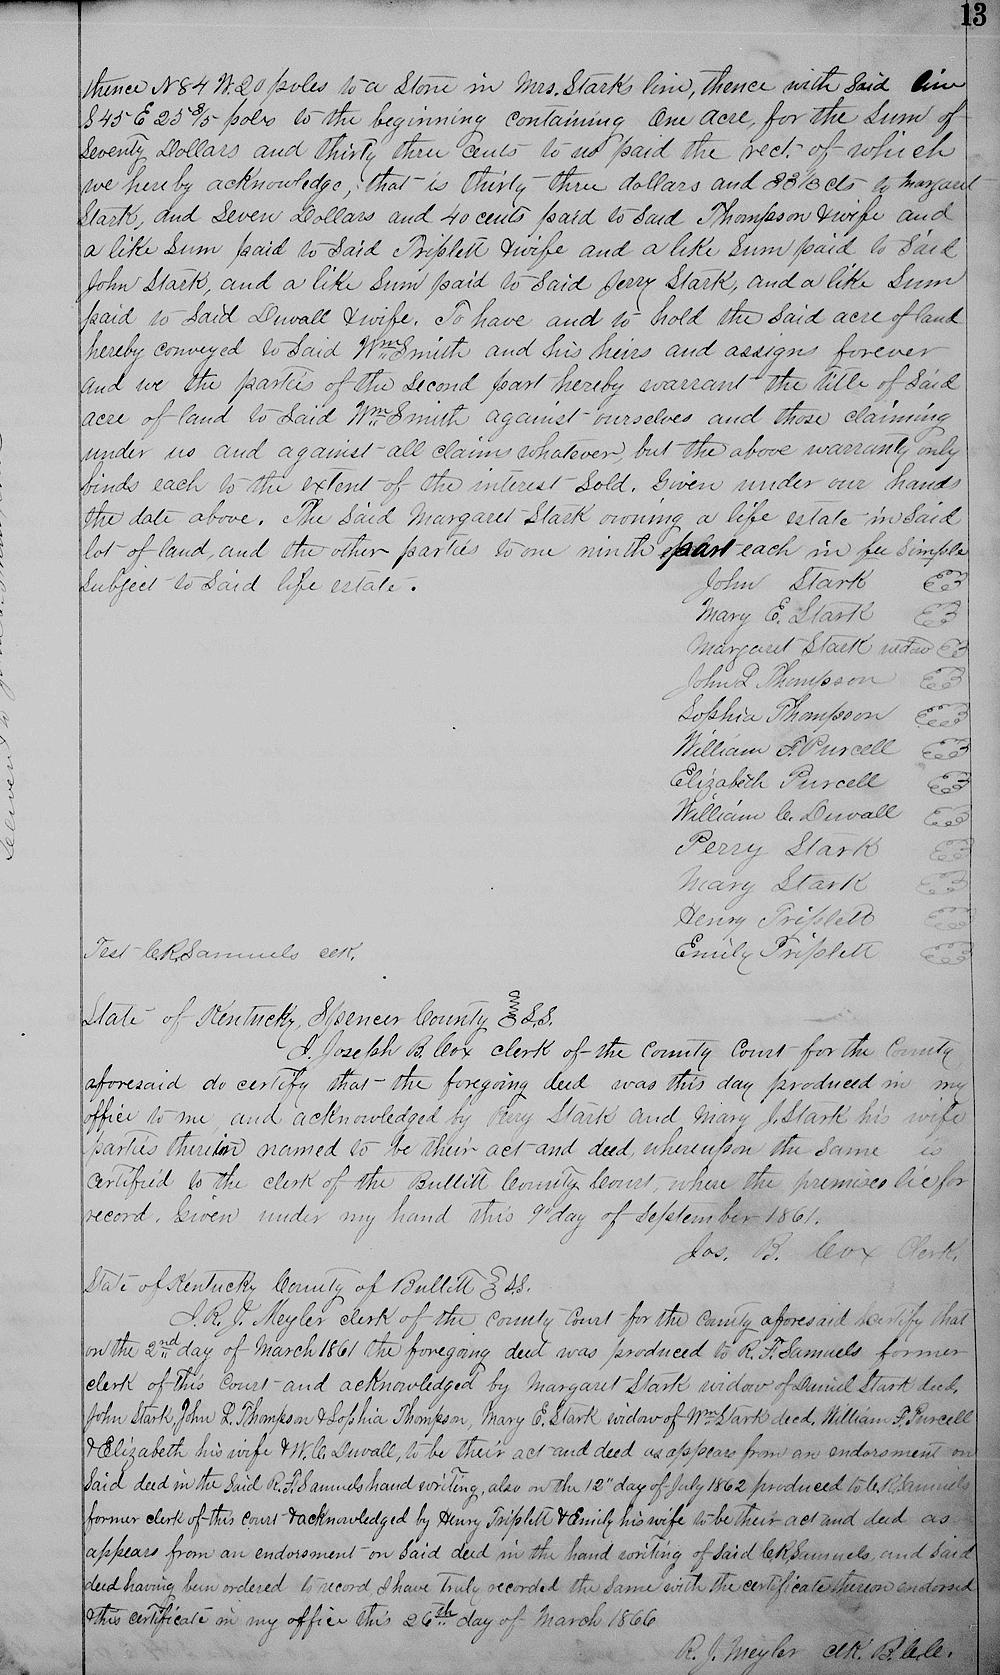 13
thence N 84 W. 20 poles to a Stone in Mrs. Starks line, thence with Said line
S 45 E 25 3/5 poles to the beginning containing One acre, for the Sum of
Seventy Dollars and thirty three cents to us paid the rect. of which
we hereby acknowledge, that is thirty three dollars and 33 1/3 cts to Margaret
Stark, and Seven Dollars and 40 cents paid to Said Thompson & wife and
a like Sum paid to Said Triplett & wife and a like Sum paid to Said
John Stark, and a like Sum paid to Said Jerry Stark, and a like Sum
paid to Said Duvall & wife. To have and to hold the Said acre of land
hereby conveyed to Said Wm Smith and his heirs and assigns forever
and we the parties of the Second part hereby warrant the title of Said
acre of land to Said Wm Smith against ourselves and those claiming
under us and against all claims whatever, but the above warranty only
binds each to the extent of the interest Sold. Given under our hands
the date above. The Said Margaret Stark owning a life estate in Said
lot of land, and the other parties to one ninth part each in fee Simple
Subject to Said life estate.
John Stark
Mary E. Stark
Margaret Stark
John L Thompson
Sophia Thompson
William F. Purcell
Elizabeth Purcell
William C. Duvall
Perry Stark
Mary Stark
Henry Triplett
Emily Triplett
Test C.R. Samuels clk.
State of Kentucky, Spencer County S.S.
I. Joseph B. Cox clerk of the County Court for the County
aforesaid do certify that the foregoing deed was this day produced in my
office to me, and acknowledged by Perry Stark and Mary J. Stark his wife
parties therein named to be their act and deed, whereupon the Same is
Certified to the clerk of the Bullitt County Court, where the premises lie for
record. Given under my hand this 9" day of September 1861.
Jos. B. Cox Clerk.
State of Kentucky County of Bullitt SS.
I. R. J. Meyler clerk of the county court for the County aforesaid certify that
on the 2nd day of March 1861 the foregoing deed was produced to R. F. Samuels former
clerk of this Court and acknowledged by Margaret Stark widow of Daniel Stark decd,
John Stark, John L. Thompson & Sophia Thompson, Mary E. Stark widow of Wm Stark decd, William F. Purcell
& Elizabeth his wife & W. C. Duvall, to be their act and deed as appears from an endorsment on
Said deed in the Said R. F. Samuels hand writing, also on the 12" day of July 1862 produced to C. R. Samuels
former clerk of this court & acknowledged by Henry Triplett & Emily his wife to be their act and deed as
appears from an endorsment on Said deed in the hand writing of Said C R Samuels, and Said
deed having been ordered to record, I have truly recorded the Same with the certificate theron endorsed
& this certificate in my office this 26th day of March 1866
R. J. Meyler clk. B.C.C.